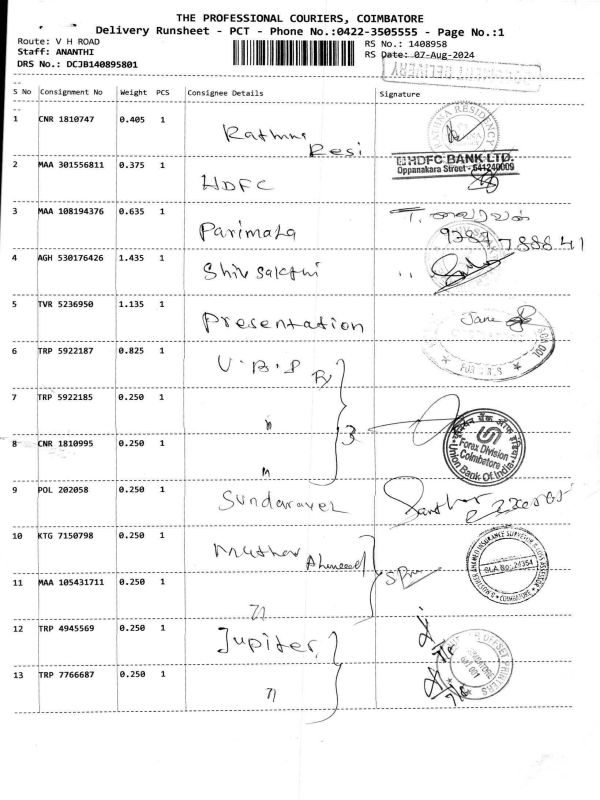 THE PROFESSIONAL COURIERS, COIMBATORE
Delivery Runsheet - PCT - Phone No.:0422-3505555 - Page No.:1
Route: V H ROAD
RS No.: 1408958
Staff: ANANTHI
RS Date: 07-Aug-2024
DRS No.: DCJB140895801
S No Consignment No Weight PCS Consignee Details Signature
1 CNR 1810747 0.405 1 Rathna Resi
RATHNA RESIDENCY
2 MAA 301556811 0.375 1 HDFC
HDFC BANK LTD.
Oppanakara Street - 641240009
3 MAA 108194376 0.635 1 Parimala
4 AGH 530176426 1.435 1 Shiv Sakthi
5 TVR 5236950 1.135 1 Presentation
Jane
6 TRP 5922187 0.825 1 U.B.I
7 TRP 5922185 0.250 1 "
3
8 CNR 1810995 0.250 1 "
Forex Division
Coimbatore
Union Bank Of India
9 POL 202058 0.250 1 Sundaravel
10 KTG 7150798 0.250 1 Muthar Ahmeed
SLA No: 24354
COIMBATORE
11 MAA 105431711 0.250 1 "
12 TRP 4945569 0.250 1 Jupiter
OFFSET PRINTERS
13 TRP 7766687 0.250 1 "